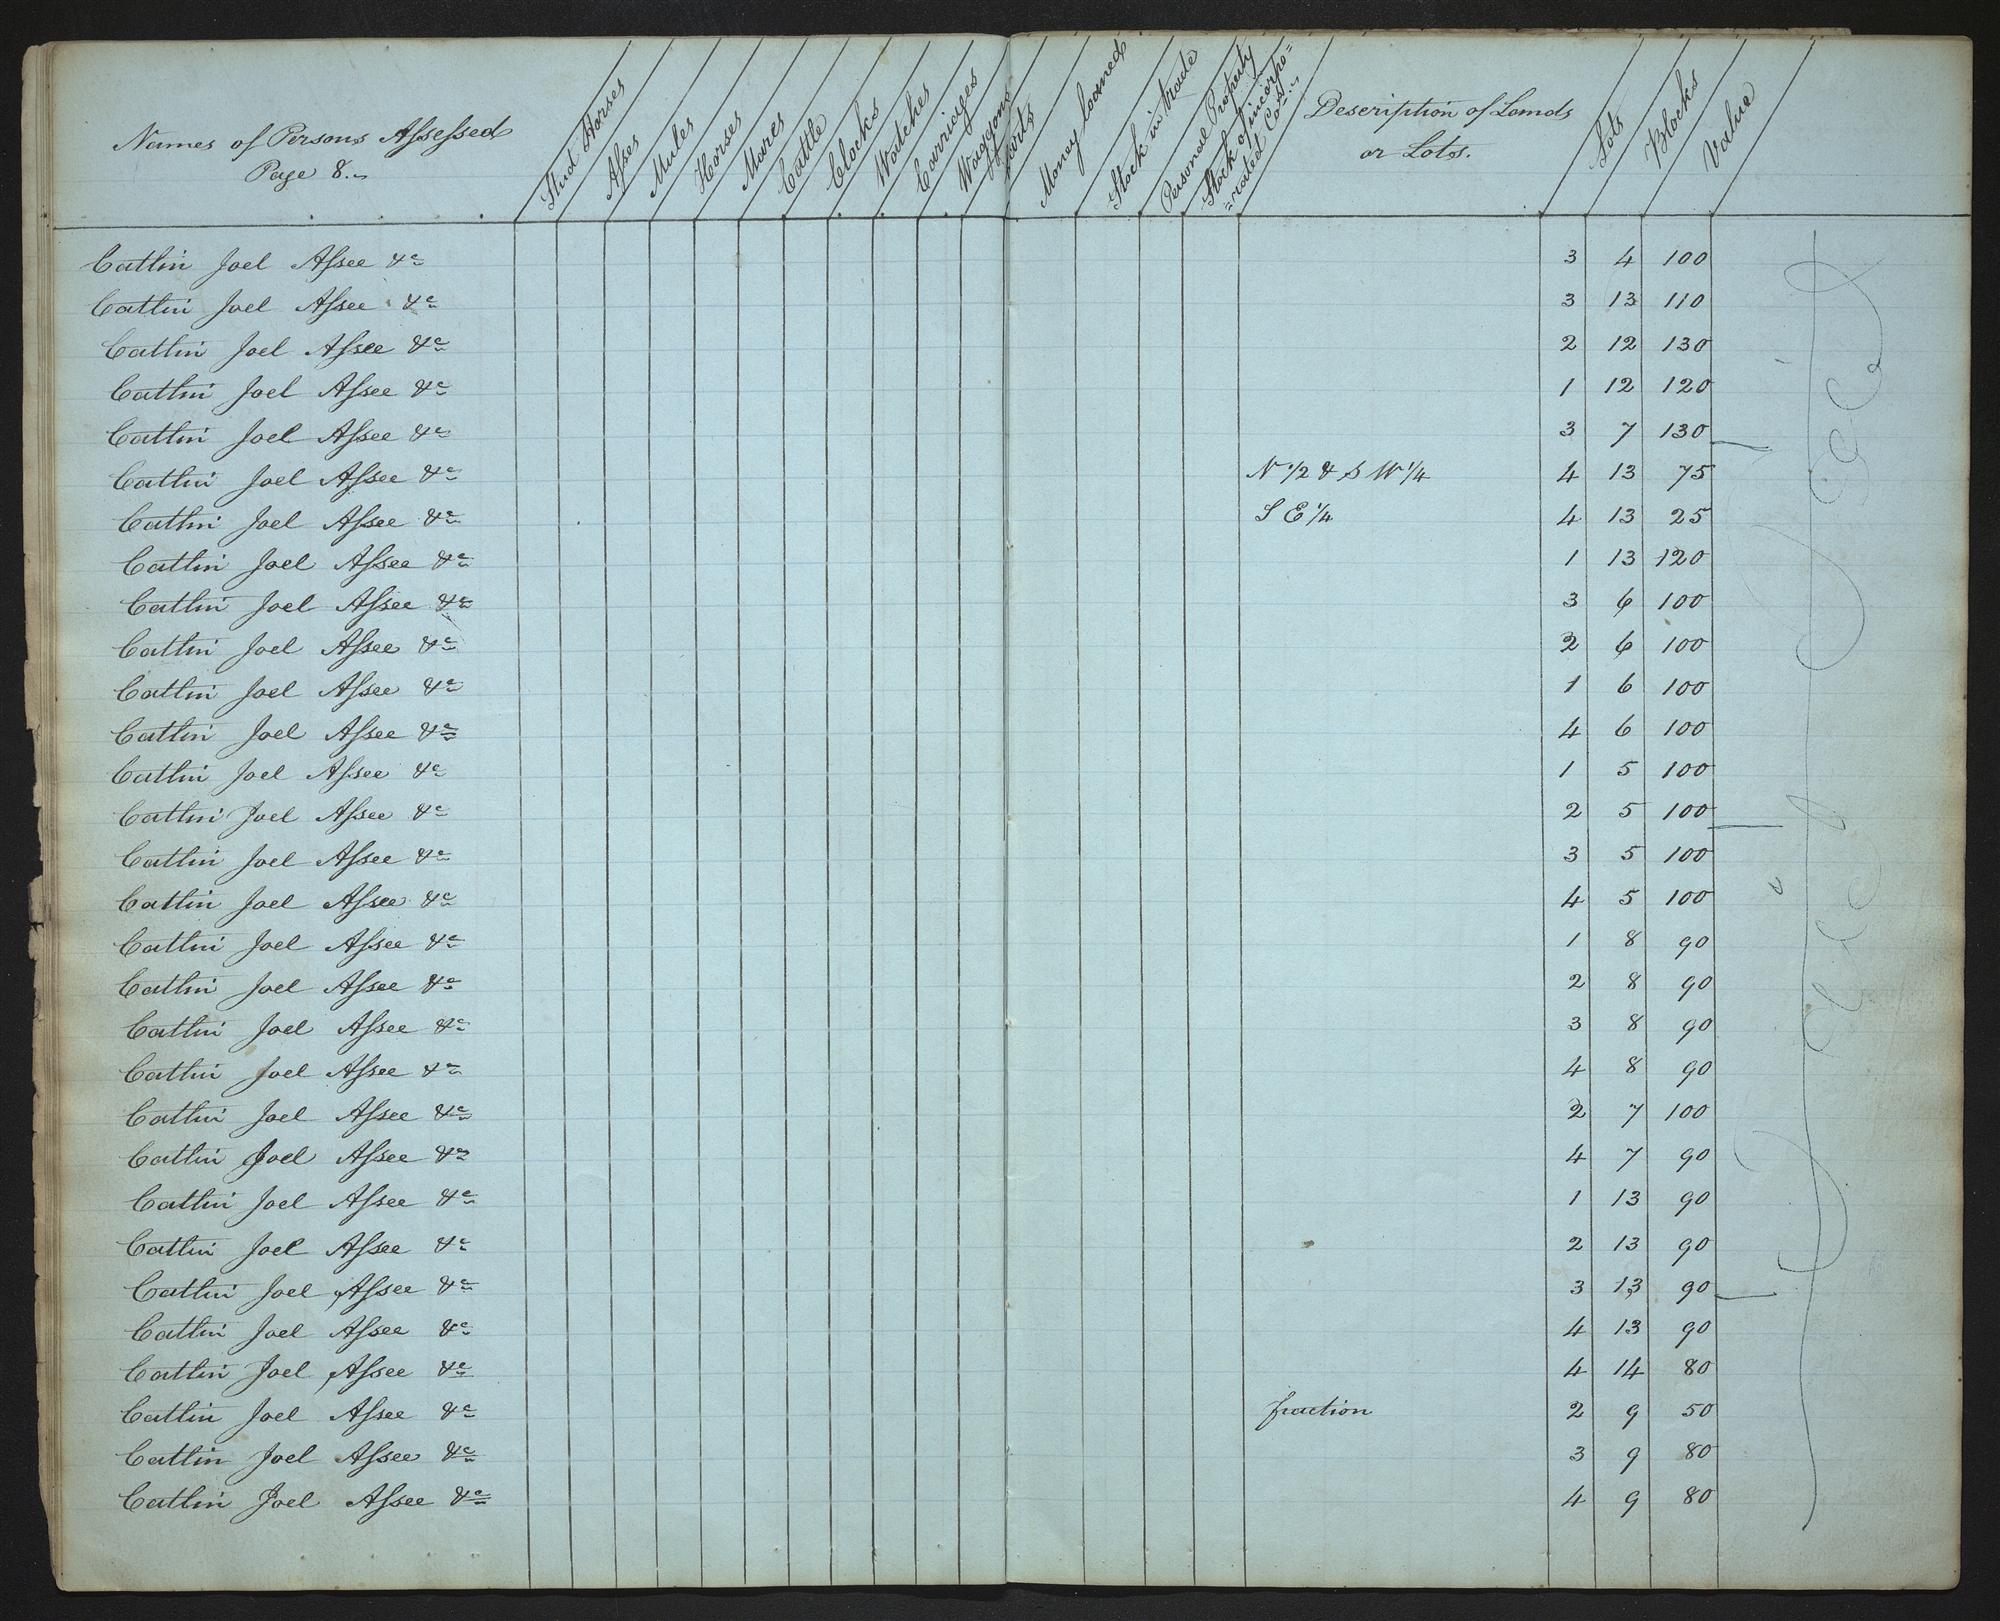 Names of Persons Assessed
Page 8.
Stud Horses
Asses
Mules
Horses
Mares
Cattle
Clocks
Watches
Carriages
Waggons & carts
Money loaned
Stock in trade
Personal Property
Stock of incorpo=
=rated Co.s
Description of Lands
or Lots.
Lots
Blocks
Value
Catlin Joel Assee &c 3 4 100
Catlin Joel Assee &c 3 13 110
Catlin Joel Assee &c 2 12 130
Catlin Joel Assee &c 1 12 120
Catlin Joel Assee &c 3 7 130
Catlin Joel Assee &c N 1/2 & S W 1/4 4 13 75
Catlin Joel Assee &c S E 1/4 4 13 25
Catlin Joel Assee &c 1 13 120
Catlin Joel Assee &c 3 6 100
Catlin Joel Assee &c 2 6 100
Catlin Joel Assee &c 1 6 100
Catlin Joel Assee &c 4 6 100
Catlin Joel Assee &c 1 5 100
Catlin Joel Assee &c 2 5 100
Catlin Joel Assee &c 3 5 100
Catlin Joel Assee &c 4 5 100
Catlin Joel Assee &c 1 8 90
Catlin Joel Assee &c 2 8 90
Catlin Joel Assee &c 3 8 90
Catlin Joel Assee &c 4 8 90
Catlin Joel Assee &c 2 7 100
Catlin Joel Assee &c 4 7 90
Catlin Joel Assee &c 1 13 90
Catlin Joel Assee &c 2 13 90
Catlin Joel Assee &c 3 13 90
Catlin Joel Assee &c 4 13 90
Catlin Joel Assee &c 4 14 80
Catlin Joel Assee &c fraction 2 9 50
Catlin Joel Assee &c 3 9 80
Catlin Joel Assee &c 4 9 80